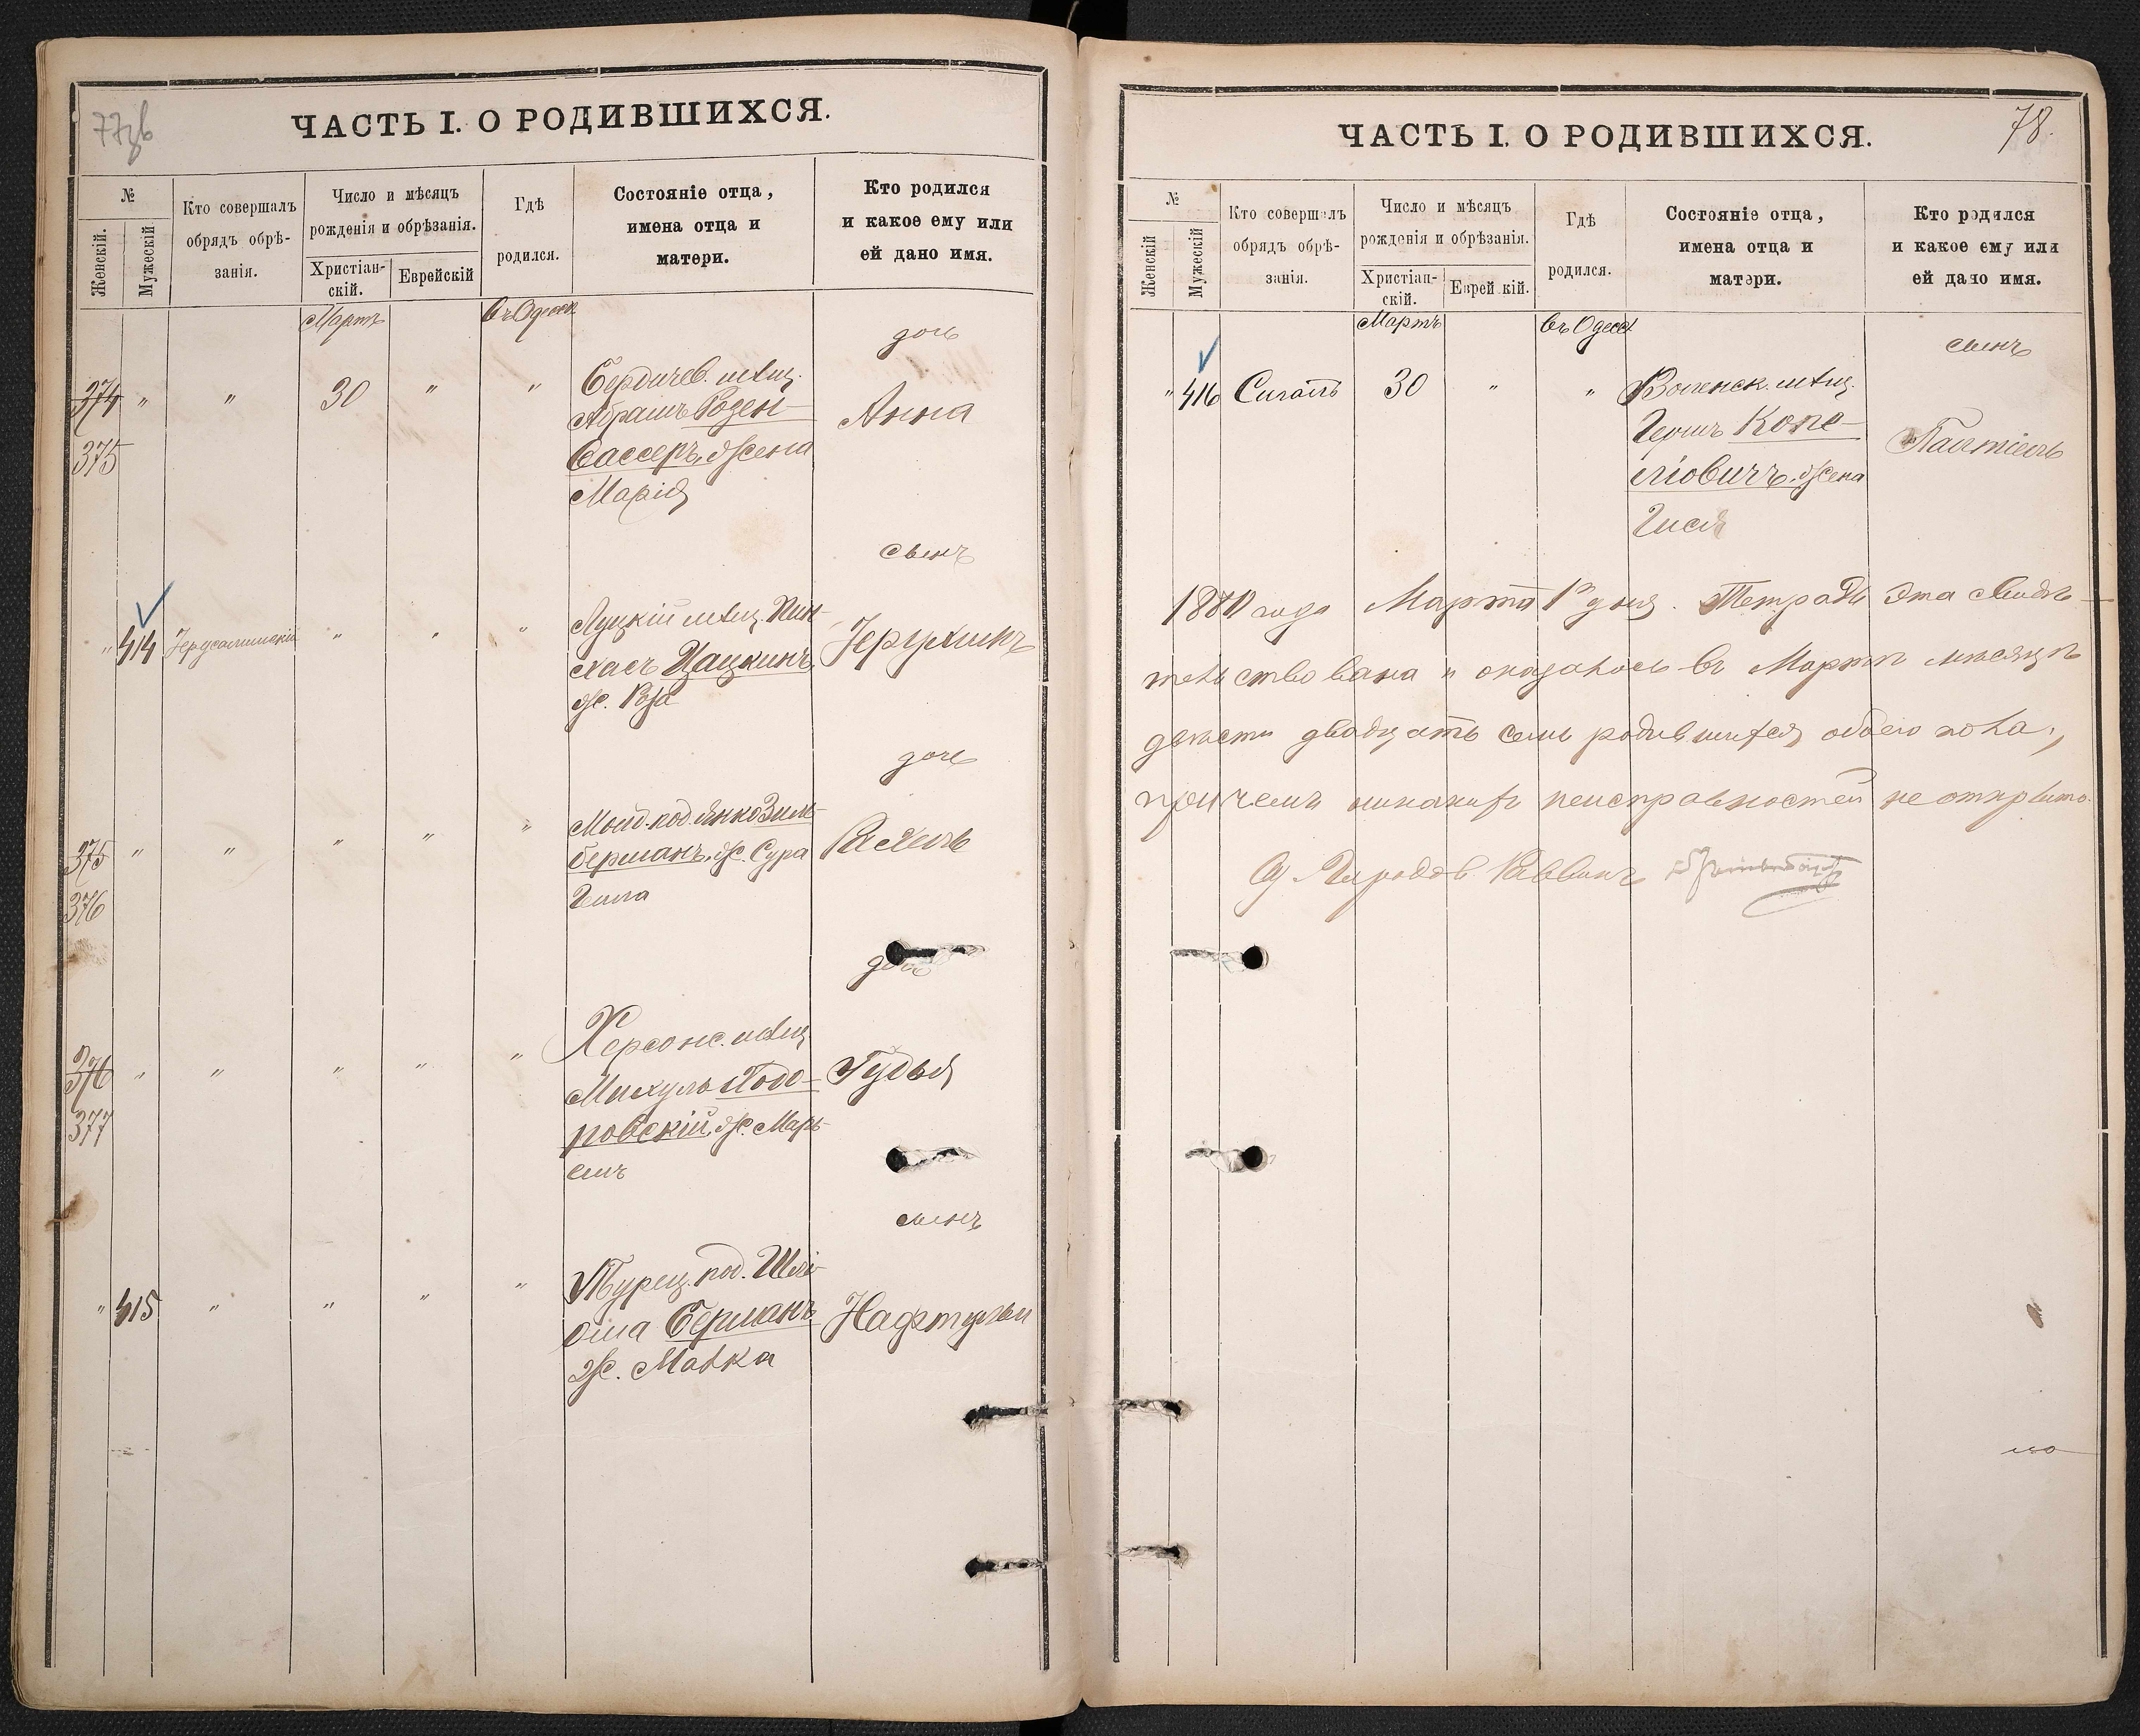 77об
ЧАСТЬ I. О РОДИВШИХСЯ.
№
Женскій.
Мужескій
Кто совершалъ
обрядъ обрѣ-
занія.
Число и мѣсяцъ
рожденія и обрѣзанія.
Христіан-
скій.
Еврейскій
Гдѣ
родился.
Состояніе отца,
имена отца и
матери.
Кто родился
и какое ему или
ей дано имя.
Мартъ
въ Одессѣ
дочь
374 " " 30 " " Бердичев. мѣщ.
Абрамъ Розен-
375
бассеръ, жена
Марія
Анна
сынъ
" 414 Іерусалимскій " " " Луцкій мѣщ. Пин-
хасъ Цацкинъ,
ж. Роза
Іерухимъ
дочь
375 " " " " " Молд. под. Янко Зиль-
берманъ, ж. Сура
376
Гитла
Рахель
дочь
376 " " " " " Херсонс. мѣщ.
Михуль Подо-
377
ровскій, ж. Марь-
емъ
Гудья
сынъ
" 415 " " " " Турец. под. Шлі-
ома Берманъ
ж. Малка
Нафтулы
78.
ЧАСТЬ I. О РОДИВШИХСЯ.
№
Женскій
Мужескій
Кто совершалъ
обрядъ обрѣ-
занія.
Число и мѣсяцъ
рожденія и обрѣзанія.
Христіан-
скій.
Еврейкій.
Гдѣ
родился.
Состояніе отца,
имена отца и
матери.
Кто родился
и какое ему или
ей дано имя.
Мартъ
въ Одессѣ
сынъ
" 416 Сигалъ 30 " " Воленск. мѣщ.
Гершъ Копе-
ліовичъ, жена
Гися
Палтіель
1880 года Марта 1 дня. Тетрадь эта свидѣ-
тельствована и оказалось въ Мартѣ мѣсяцѣ
двѣсти двадцать семь родившихся обоего пола,
причемъ никакихъ неисправностей не открыто.
Городов. Раввинъ